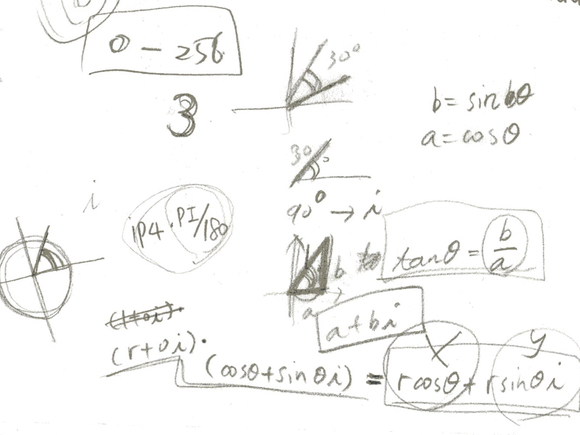 0 - 256
30°
3
b = sinθ
a = cosθ
30°
90° → i
i
iP4·PI/180
b
a
tanθ = b/a
a+bi
x
y
(r+0i)·
(cosθ+sinθi) = rcosθ+rsinθi